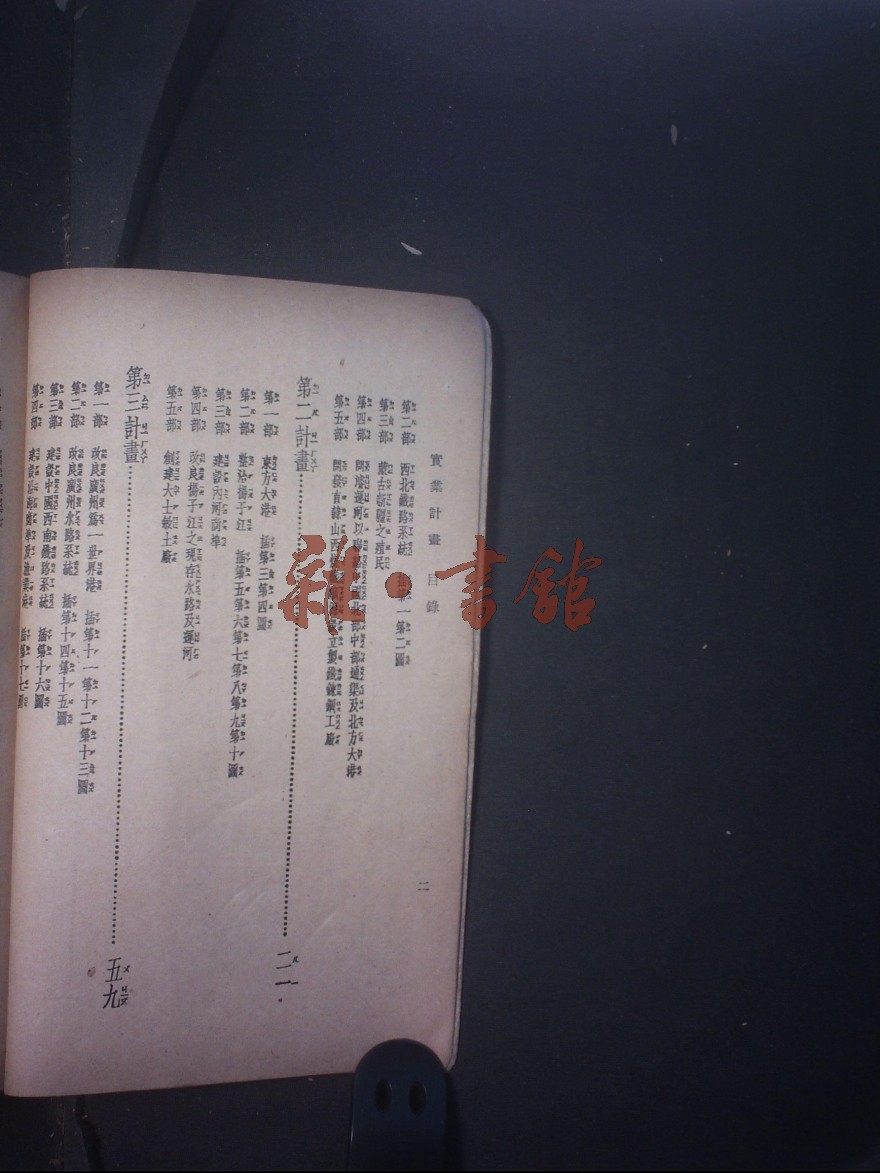 實業計畫 目錄
二
第二部 西北鐵路系統 第一第二圖
第三部 蒙古新疆之殖民
第四部 開濬運河以聯絡中國北部中部通渠及北方大港
第五部 開發直隸山西 立製鐵鍊鋼工廠
第二計畫…………二一
第一部 東方大港 插第三第四圖
第二部 整治揚子江 插第五第六第七第八第九第十圖
第三部 建設內河商埠
第四部 改良揚子江之現存水路及運河
第五部 創建大士敏土廠
第三計畫…………五九
第一部 改良廣州為一世界港 插第十一第十二第十三圖
第二部 改良廣州水路系統 插第十四第十五圖
第三部 建設中國西南鐵路系統 插第十六圖
第四部 建設沿海商埠及漁業港 插第十七圖
雜·書館